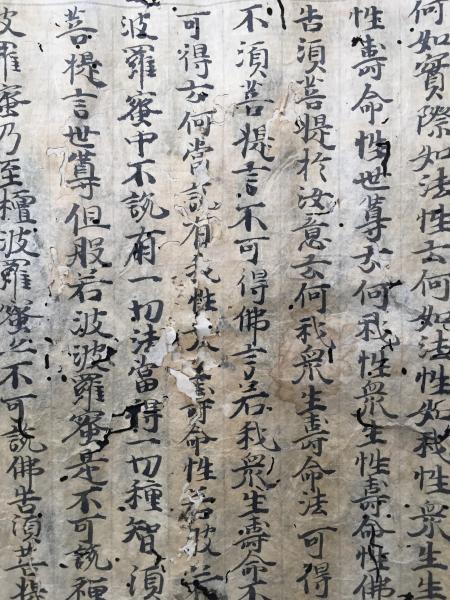 何如實際如法性云何如法性如我性衆生
性壽命性世尊云何我性衆生性壽命性佛
告須菩提於汝意云何我衆生壽命法可得
不須菩提言不可得佛言若我衆生壽命不
可得云何當說有我性衆壽命性若般
波羅蜜中不說有一切法當得一切種智須
菩提言世尊但般若波波羅蜜是不可說種
波羅蜜乃至檀波羅蜜亦不可說佛告須菩提